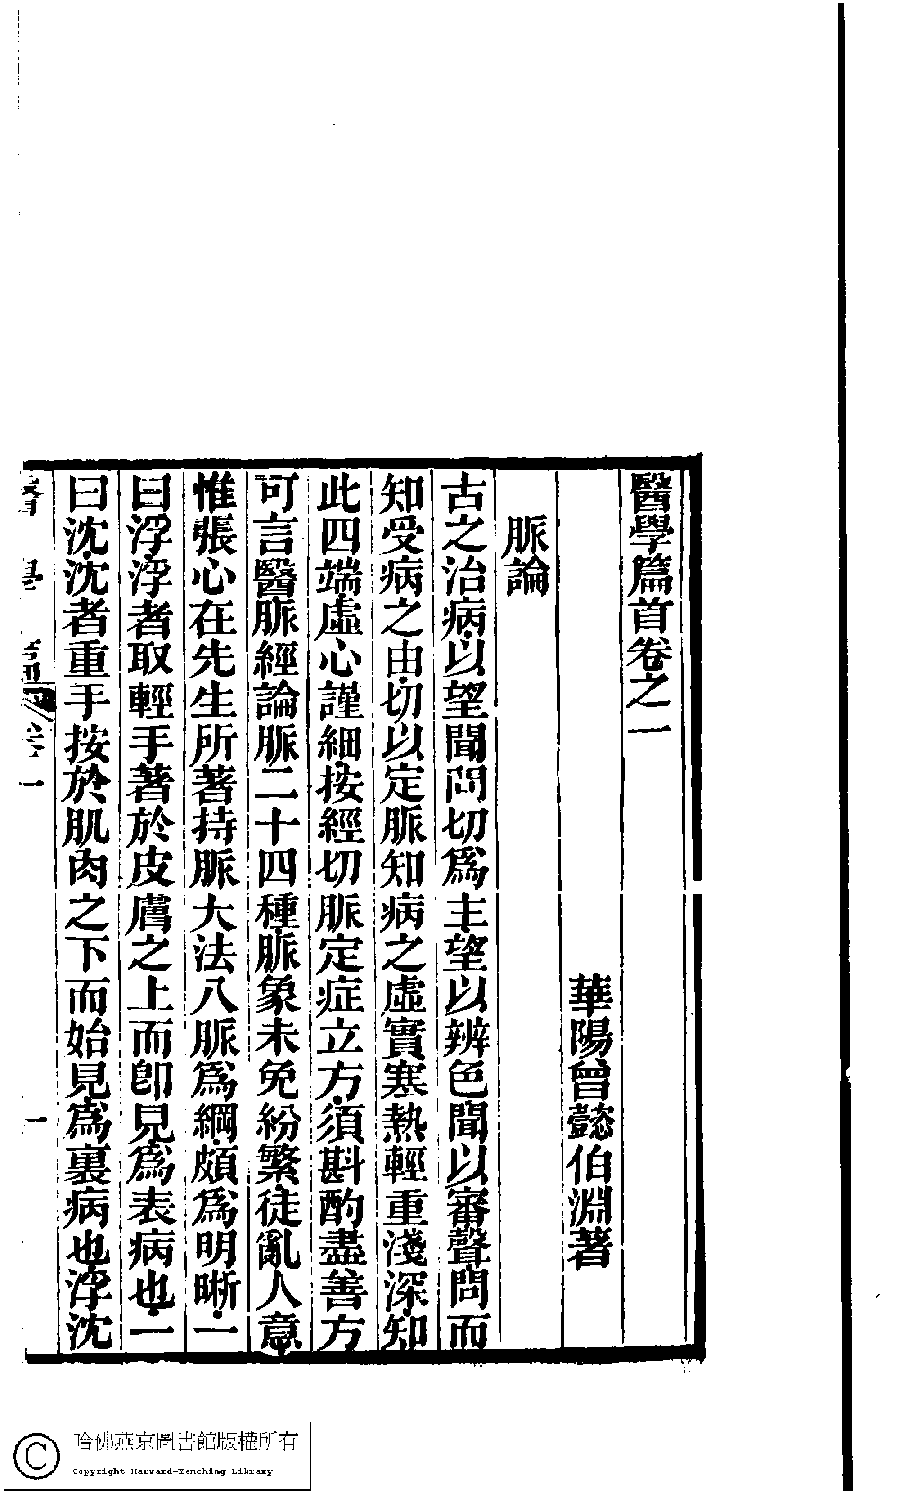 醫學篇首卷之一
華陽曾懿伯淵著
脈論
古之治病以望聞問切為主望以辨色聞以審聲問而
知受病之由切以定脈知病之虛實寒熱輕重淺深知
此四端虛心謹細按經切脈定症立方須斟酌盡善方
可言醫脈經論脈二十四種脈象未免紛繁徒亂人意
惟張心在先生所著持脈大法八脈為綱頗為明晰一
曰浮浮者取輕手著於皮膚之上而卽見為表病也一
曰沈沈者重手按於肌肉之下而始見為裏病也浮沈
醫學篇 卷一 一
哈佛燕京圖書館版權所有
Copyright Harvard-Yenching Library